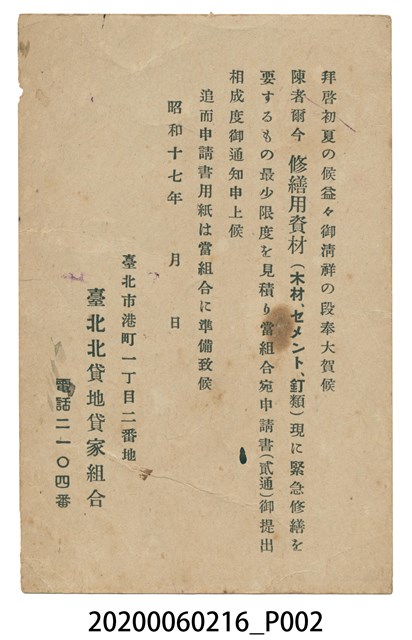 拜啓初夏の候益々御淸祥の段奉大賀候
陳者爾今修繕用資材(木材、セメント、釘類)現に緊急修繕を
要するもの最少限度を見積り當組合宛申請書(貳通)御提出
相成度御通知申上候
追而申請書用紙は當組合に準備致候
昭和十七年 月 日
臺北市港町一丁目二番地
臺北北貸地貸家組合
電話二一〇四番
20200060216_P002